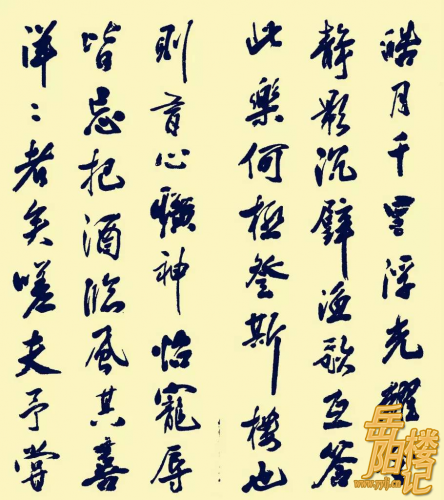 皓月千里浮光耀
靜影沉璧漁歌互答
此樂何極登斯樓也
則有心曠神怡寵辱
皆忘把酒臨風其喜
洋〻者矣嗟夫予嘗
岳阳楼记